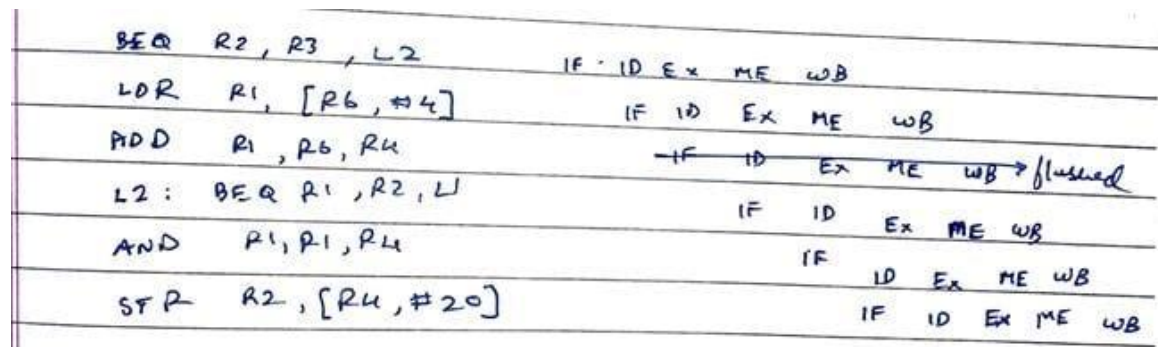 BEQ R2, R3, L2 IF ID Ex ME WB
LDR R1, [R6, #4] IF ID Ex ME WB
ADD R1, R6, R4 IF ID Ex ME WB → flushed
L2: BEQ R1, R2, L1 IF ID Ex ME WB
AND R1, R1, R4 IF ID Ex ME WB
STR R2, [R4, #20] IF ID Ex ME WB